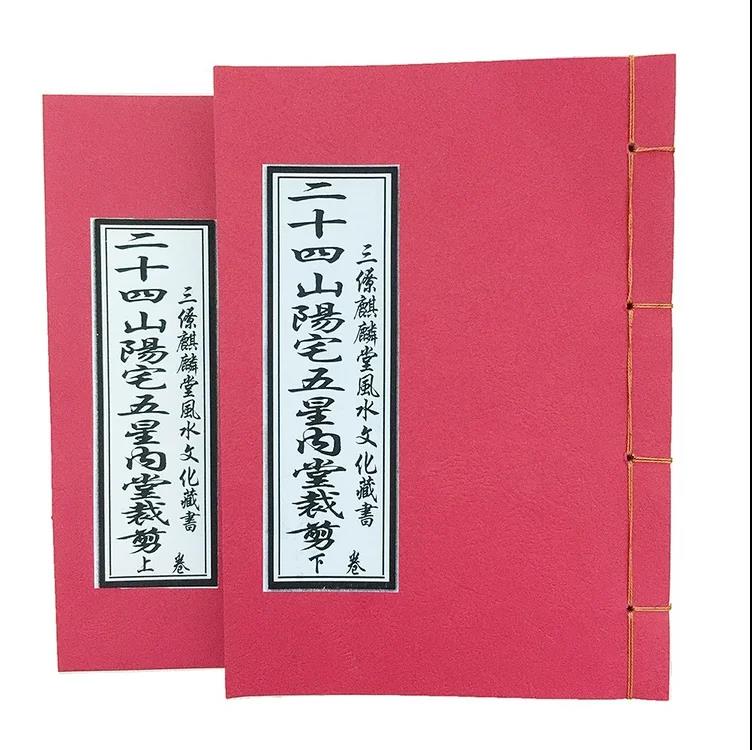 二十四山陽宅五星內堂裁剪
三僚麒麟堂風水文化藏書
卷上
二十四山陽宅五星內堂裁剪
三僚麒麟堂風水文化藏書
卷下